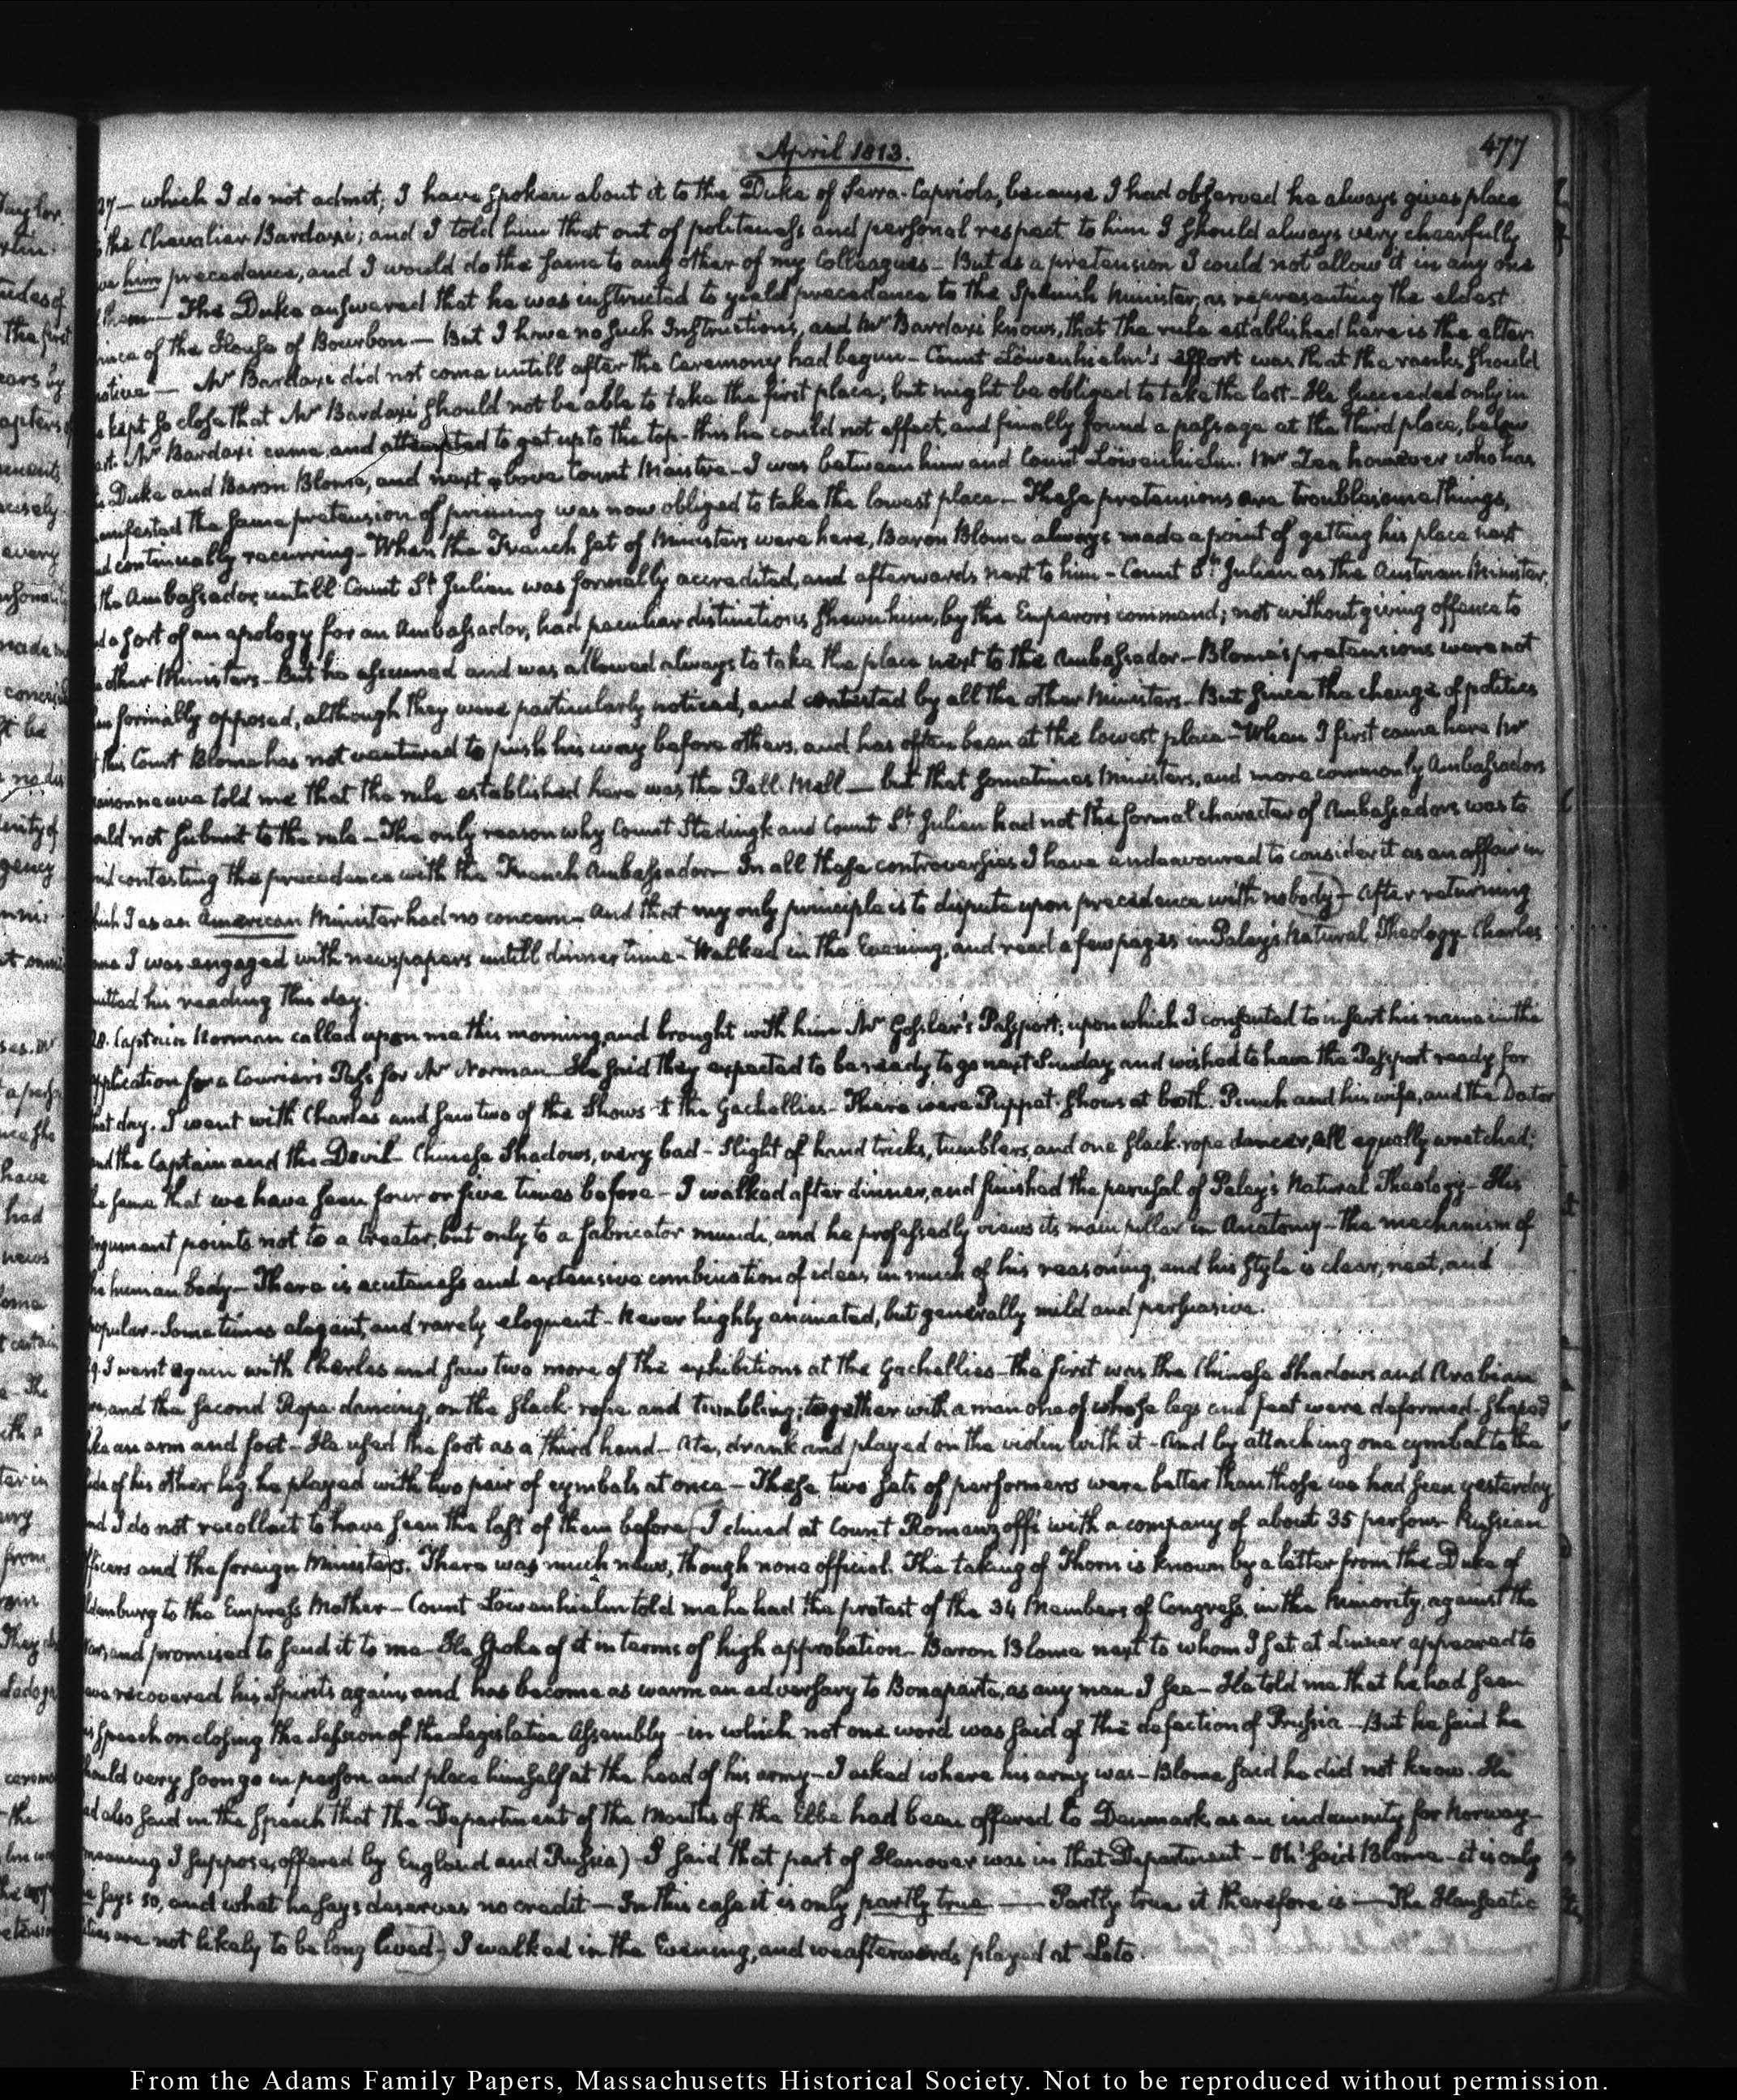 April 1813.
477
27 — which I do not admit; I have spoken about it to the Duke of Serra-Capriola, because I had observed he always gives place
the Chevalier Bardaxi; and I told him that out of politeness and personal respect to him I should always very cheerfully
him precedence, and I would do the same to any other of my Colleagues — But as a pretension I could not allow it in any one
them — The Duke answered that he was instructed to yield precedence to the Spanish Minister, as representing the eldest
of the House of Bourbon — But I have no such Instructions, and Mr Bardaxi knows, that the rule established here is the alter-
native — Mr Bardaxi did not come untill after the Ceremony had begun — Count Löwenhielm's effort was that the ranks should
kept so close that Mr Bardaxi should not be able to take the first place; but might be obliged to take the last — He succeeded only in
part. Mr Bardaxi came, and attempted to get up to the top — this he could not effect, and finally found a passage at the third place, below
Duke and Baron Blome, and next above Count Maistre — I was between him and Count Löwenhielm. Mr Zea however who has
manifested the same pretension of priming was now obliged to take the lowest place — These pretensions are troublesome things,
and continually recurring — When the French set of Ministers were here, Baron Blome always made a point of getting his place next
the Ambassador, untill Count St Julien was formally accredited, and afterwards next to him — Count St Julien as the Austrian Minister,
a sort of an apology for an Ambassador, had peculiar distinctions shewn him, by the Emperor's command; not without giving offence to
other Ministers — But he assumed and was allowed always to take the place next to the Ambassador — Blome's pretensions were not
formally opposed, although they were particularly noticed, and contested by all the other Ministers — But since the change of politics
this Court Blome has not ventured to push his way before others, and has often been at the lowest place — When I first came here Mr
Maisonneuve told me that the rule established here was the Pell-Mell — but that sometimes Ministers, and more commonly Ambassadors
would not submit to the rule — The only reason why Count Stedingk and Count St Julien had not the formal character of Ambassadors was to
contesting the precedence with the French Ambassador — In all these controversies I have endeavoured to consider it as an affair in
which I as an American Minister had no concern — And that my only principle is to dispute upon precedence with nobody) — After returning
I was engaged with newspapers untill dinner time — Walked in the Evening, and read a few pages in Paley's Natural Theology — Charles
omitted his reading this day.
28. Captain Norman called upon me this morning and brought with him Mr Gossler's Passport; upon which I consented to insert his name in the
application for a Courier's Pass for Mr Norman — He said they expected to be ready to go next Sunday, and wished to have the Passport ready for
that day. I went with Charles and saw two of the Shows at the Gachellies — There were Puppet-Shows at both. Punch and his wife, and the Doctor
and the Captain and the Devil — Chinese Shadows, very bad — Slight of hand tricks, tumblers, and one slack-rope dancer, all equally wretched;
the same that we have seen four or five times before — I walked after dinner, and finished the perusal of Paley's Natural Theology — His
argument points not to a Creator, but only to a fabricator mundi, and he professedly views its main pillar in Anatomy — the mechanism of
the human body — There is acuteness and extensive combination of ideas in much of his reasoning, and his style is clear, neat, and
popular — Sometimes elegant, and rarely eloquent — Never highly animated, but generally mild and persuasive.
29. I went again with Charles and saw two more of the exhibitions at the Gachellies — the first was the Chinese Shadows and Arabian
and the second Rope-dancing, on the slack-rope and tumbling; together with a man one of whose legs and feet were deformed — shaped
like an arm and foot — He used the foot as a third hand — Ate, drank and played on the violin with it — And by attaching one cymbal to the
side of his other leg, he played with two pair of cymbals at once — These two sets of performers were better than those we had seen yesterday
and I do not recollect to have seen the last of them before (I dined at Count Romanzoff's with a company of about 35 persons — Russian
Officers and the foreign Ministers. There was much news, though none official. The taking of Thorn is known by a letter from the Duke of
Oldenburg to the Empress Mother — Count Löwenhielm told me he had the protest of the 34 Members of Congress, in the Minority, against the
War, and promised to send it to me — He spoke of it in terms of high approbation — Baron Blome next to whom I sat at dinner appeared to
have recovered his Spirits again, and has become as warm an adversary to Bonaparte, as any man I see — He told me that he had seen
his speech on closing the Session of the Legislative Assembly — in which not one word was said of the defection of Prussia — But he said he
should very soon go in person and place himself at the head of his army — I asked where his army was — Blome said he did not know. He
had also said in the speech that the Department of the Mouths of the Elbe had been offered to Denmark, as an indemnity for Norway —
(meaning I suppose, offered by England and Russia) — I said that part of Hanover was in that Department — Oh! said Blome — it is only
he says so, and what he says deserves no credit — In this case it is only partly true — Partly true it therefore is — The Hanseatic
Cities are not likely to be long lived) — I walked in the Evening, and we afterwards played at Loto.
From the Adams Family Papers, Massachusetts Historical Society. Not to be reproduced without permission.